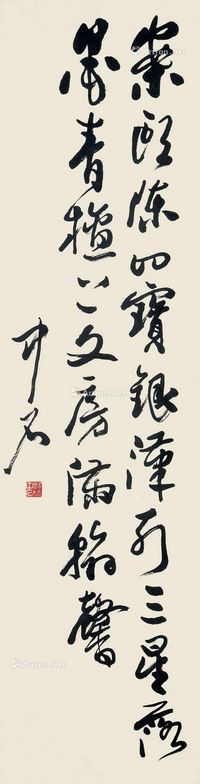 案頭陳四寶銀漢列三星落
墨青檀上文房滿翰馨
中石